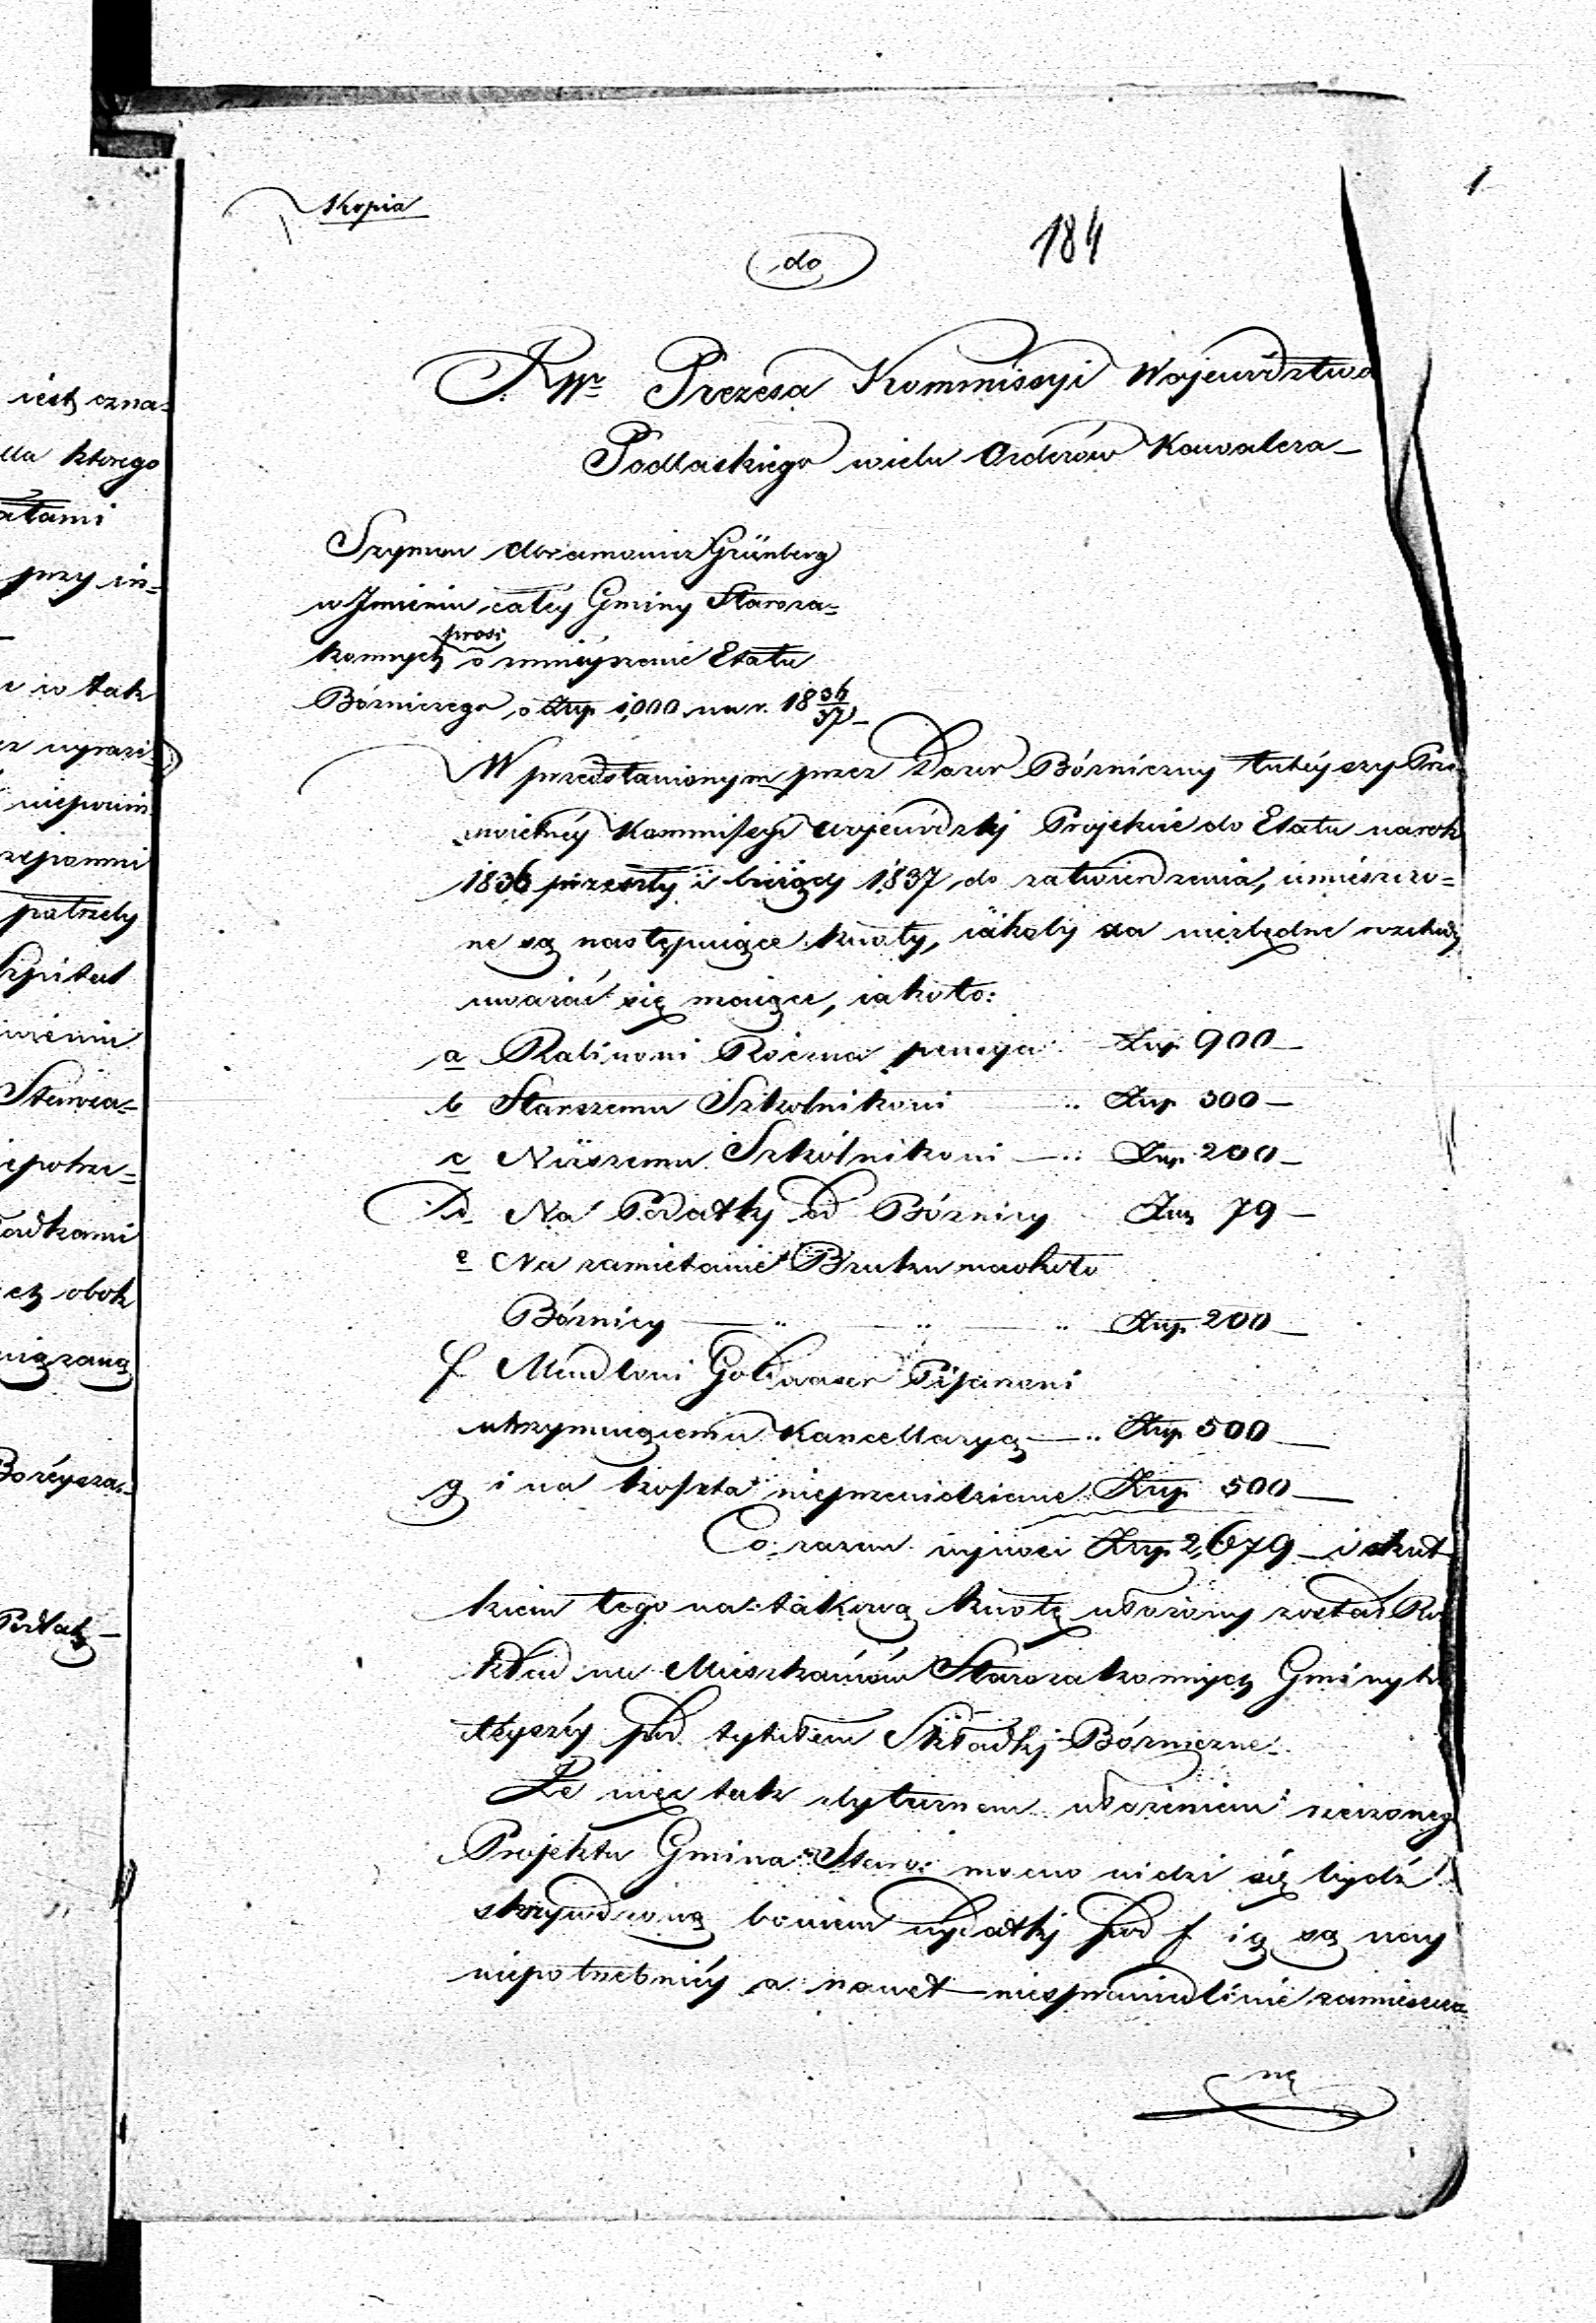 Kopia
184
do
JWP Prezesa Kommissyi Wojewodztwa
Podlaskiego wielu Orderów Kawalera
Szymon Abramowicz Grünberg
w Jmieniu całéy Gminy Staroza=
konnych prosi o zmnieyszenie Etatu
Bózniczego o Złp 1,000 na r. 1836/37
W przedstawionym przez Dozór Bózniczny tutéyszy Prze
swietnéy Kommissyi Wojewódzkij Projekcie do Etatu na rok
1836 przeszły i bieżący 1837 do zatwierdzenia, umieszczo=
ne są następuiące kwoty, iakoby za niezbędne
uważać się maiące, iakoto:
a Rabinowi Roczna pensya Złp 900
b Starszemu Szkolnikowi Złp 300
c Niższemu Szkólnikowi Złp 200
d Na Podatky od Bóznicy Złp 79
e Na zamietanie Bruku naokoło
Bóznicy Złp 200
f Mendlowi Pisarzowi
utrzymuiącemu Kancellaryą Złp 500
g i na koszta nieprzewidziane Złp 500
Co razem wynosi Złp 2,679 i skut
kiem tego na takową kwotę ułożony został Roz
kład na Mieszkańców Starozakonnych Gminy tu
téyszéy pod tytułem Składkj Bózniczne.
Ze więc tak ułożeniem rzeczoneg
Projektu Gmina Staro: mocno widzi się bydź
skrzywdzoną bowiem wydatkj pod f i g są nay
niepotrzebniéy a nawet niesprawiedliwie zamieszczo
ne
iest ozna=
dla ktorego
przy in=
tak
wyrazi
niepowin
patrzeby
Szpital
Stawia=
epotrze=
adkami
ch obok
wiązaną